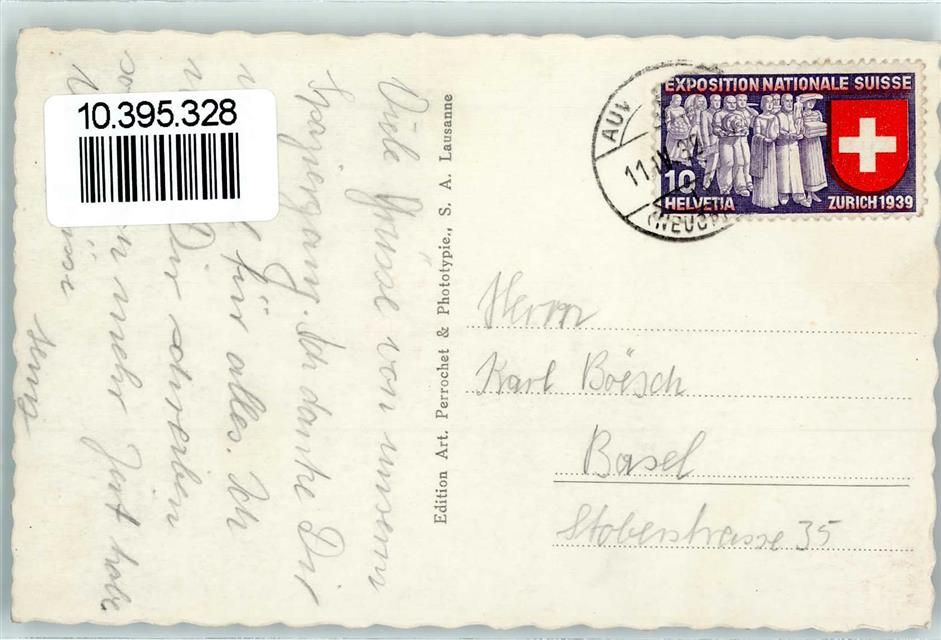 10.395.328
Viele Grüsse von unserem
Spaziergang. Ich danke Dir
für alles. Ich
Dir schreiben
mehr Zeit habe
Edition Art. Perrochet & Phototypie., S. A. Lausanne
AUV
11.III.39
(NEUCH
EXPOSITION NATIONALE SUISSE
10
HELVETIA
ZURICH 1939
Herrn
Karl Boesch
Basel
Stoberstrasse 35